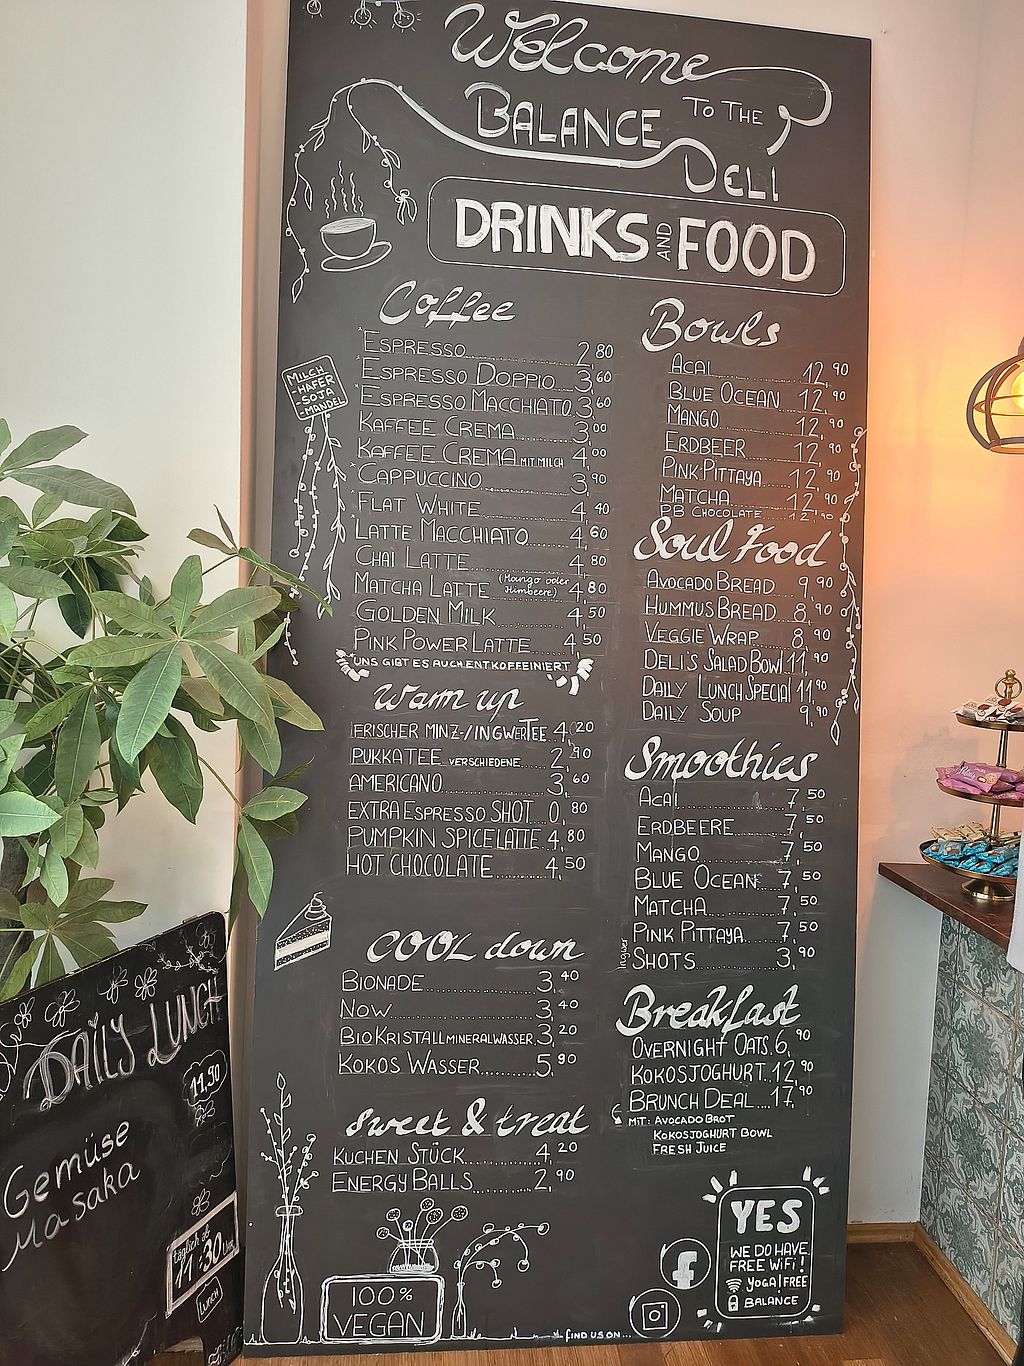 Welcome
TO THE
BALANCE
DELI
DRINKS AND FOOD
Coffee
ESPRESSO 2,80
ESPRESSO DOPPIO 3,60
ESPRESSO MACCHIATO 3,60
KAFFEE CREMA 3,00
KAFFEE CREMA MIT MILCH 4,00
CAPPUCCINO 3,90
FLAT WHITE 4,40
LATTE MACCHIATO 4,60
CHAI LATTE 4,80
MATCHA LATTE (Mango oder Himbeere) 4,80
GOLDEN MILK 4,50
PINK POWER LATTE 4,50
*UNS GIBT ES AUCH ENTKOFFEINIERT
MILCH
-HAFER
-SOJA
-MANDEL
Warm up
FRISCHER MINZ-/INGWERTEE 4,20
PUKKATEE VERSCHIEDENE 2,90
AMERICANO 3,60
EXTRA ESPRESSO SHOT 0,80
PUMPKIN SPICE LATTE 4,80
HOT CHOCOLATE 4,50
COOL down
BIONADE 3,40
NOW 3,40
BIO KRISTALLMINERALWASSER 3,20
KOKOS WASSER 5,90
sweet & treat
KUCHEN STÜCK 4,20
ENERGY BALLS 2,90
100%
VEGAN
Bowls
ACAI 12,90
BLUE OCEAN 12,90
MANGO 12,90
ERDBEER 12,90
PINK PITTAYA 12,90
MATCHA 12,90
PB CHOCOLATE 12,90
Soul Food
AVOCADO BREAD 9,90
HUMMUS BREAD 8,90
VEGGIE WRAP 8,90
DELI'S SALAD BOWL 11,90
DAILY LUNCH SPECIAL 11,90
DAILY SOUP 9,90
Smoothies
ACAI 7,50
ERDBEERE 7,50
MANGO 7,50
BLUE OCEAN 7,50
MATCHA 7,50
PINK PITTAYA 7,50
Ingwer SHOTS 3,90
Breakfast
OVERNIGHT OATS 6,90
KOKOSJOGHURT 12,90
BRUNCH DEAL 17,90
MIT: AVOCADO BROT
KOKOSJOGHURT BOWL
FRESH JUICE
YES
WE DO HAVE
FREE WIFI!
YOGA|FREE
BALANCE
FIND US ON...
DAILY LUNCH
11,90
Gemüse
Masaka
täglich ab
11:30 Uhr
LUNCH